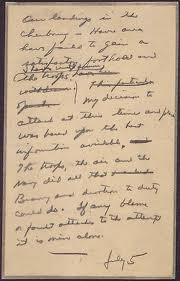 Our landings in the
Cherbourg - Havre area
have failed to gain a
satisfactory foothold and
I have withdrawn
the troops have been
withdrawn. This particular
operation My decision to
attack at this time and place
was based upon the best
information available,
The troops, the air and the
Navy did all that
Bravery and devotion to duty
could do. If any blame
or fault attaches to the attempt
it is mine alone.
July 5